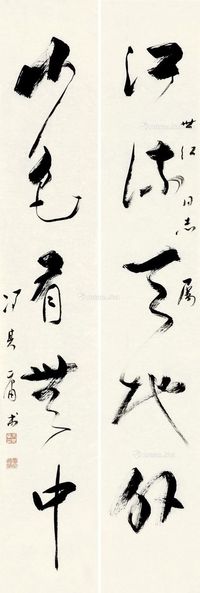 江流天地外
世江同志属
山色有无中
冯其庸书